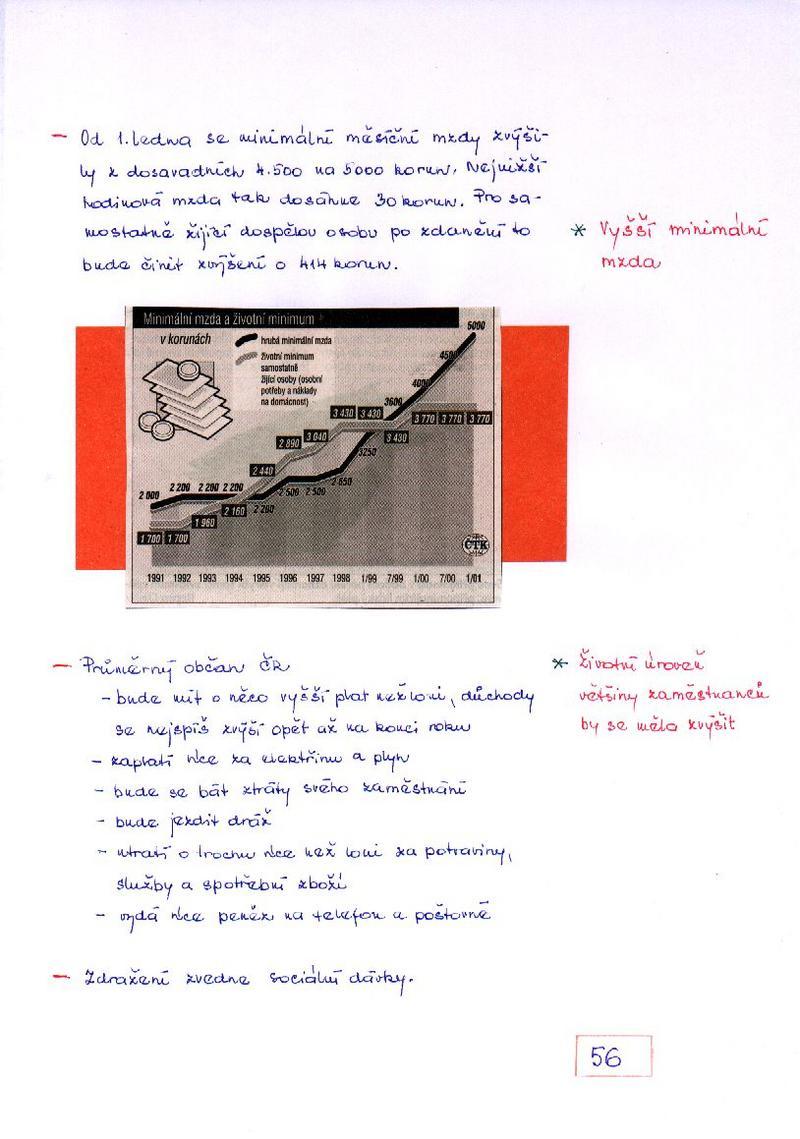 – Od 1. ledna se minimální měsíční mzdy zvýši-
ly z dosavadních 4.500 na 5000 korun. Nejnižší
hodinová mzda tak dosáhne 30 korun. Pro sa-
mostatně žijící dospělou osobu po zdanění to
bude činit zvýšení o 414 korun.
* Vyšší minimální
mzda
Minimální mzda a životní minimum
v korunách
hrubá minimální mzda
životní minimum
samostatně
žijící osoby (osobní
potřeby a náklady
na domácnost)
5000
4500
4000
3600
3 430 3 430
3 770 3 770 3 770
3 430
3250
2 890 3 040
2 440
2 650
2 500 2 500
2 000 2 200 2 200 2 200
2 160 2 200
1 960
1 700 1 700
ČTK
1991 1992 1993 1994 1995 1996 1997 1998 1/99 7/99 1/00 7/00 1/01
– Průměrný občan ČR
– bude mít o něco vyšší plat než loni, důchody
se nejspíš zvýší opět až na konci roku
– zaplatí více za elektřinu a plyn
– bude se bát ztráty svého zaměstnání
– bude jezdit dráž
– utratí o trochu více než loni za potraviny,
služby a spotřební zboží
– vydá více peněz na telefon a poštovné
* Životní úroveň
většiny zaměstnanců
by se měla zvýšit
– Zdražení zvedne sociální dávky.
56